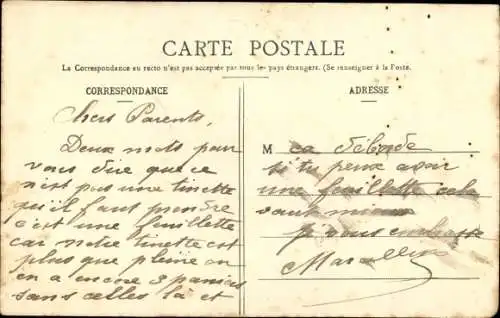 CARTE POSTALE
La Correspondance au recto n'est pas acceptée par tous les pays étrangers. (Se renseigner à la Poste.
CORRESPONDANCE
Chers Parents,
Deux mots pour
vous dire que ce
n'est pas une tinette
qu'il faut prendre
c'est une feuillette
car notre tinette est
plus que pleine on
en a encore 3 paniers
sans celles là et
ADRESSE
M
ça déborde
si tu peux avoir
une feuillette cela
vaut mieux
je vous embrasse